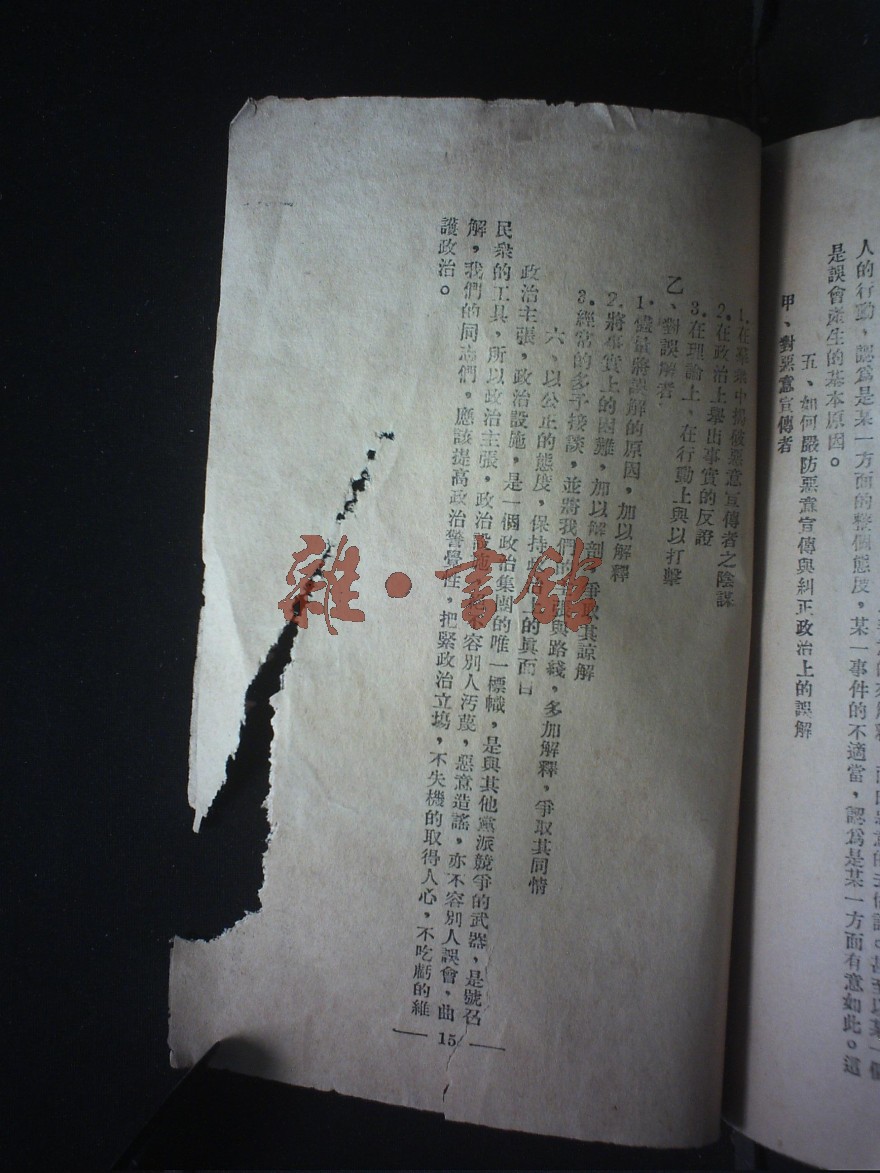 人的行動,認爲是某一方面的整個態度,某一事件的不適當,認爲是某一方面有意如此。這
是誤會產生的基本原因。
五、如何嚴防惡意宣傳與糾正政治上的誤解
甲、對惡意宣傳者
1.在羣衆中揭破惡意宣傳者之陰謀
2.在政治上舉出事實的反證
3.在理論上、在行動上與以打擊
乙、對誤解者
1.儘量將誤解的原因,加以解釋
2.將事實上的困難,加以解剖,爭取其諒解
3.經常的多予接談,並將我們的主張與路綫,多加解釋,爭取其同情
六、以公正的態度,保持政治上的眞面目
政治主張,政治設施,是一個政治集團的唯一標幟,是與其他黨派競爭的武器,是號召
民衆的工具,所以政治主張,政治設施,容別人汚蔑,惡意造謠,亦不容別人誤會、曲
解,我們的同志們,應該提高政治警覺性,把緊政治立塲,不失機的取得人心,不吃虧的維
護政治。
15
雜·書館